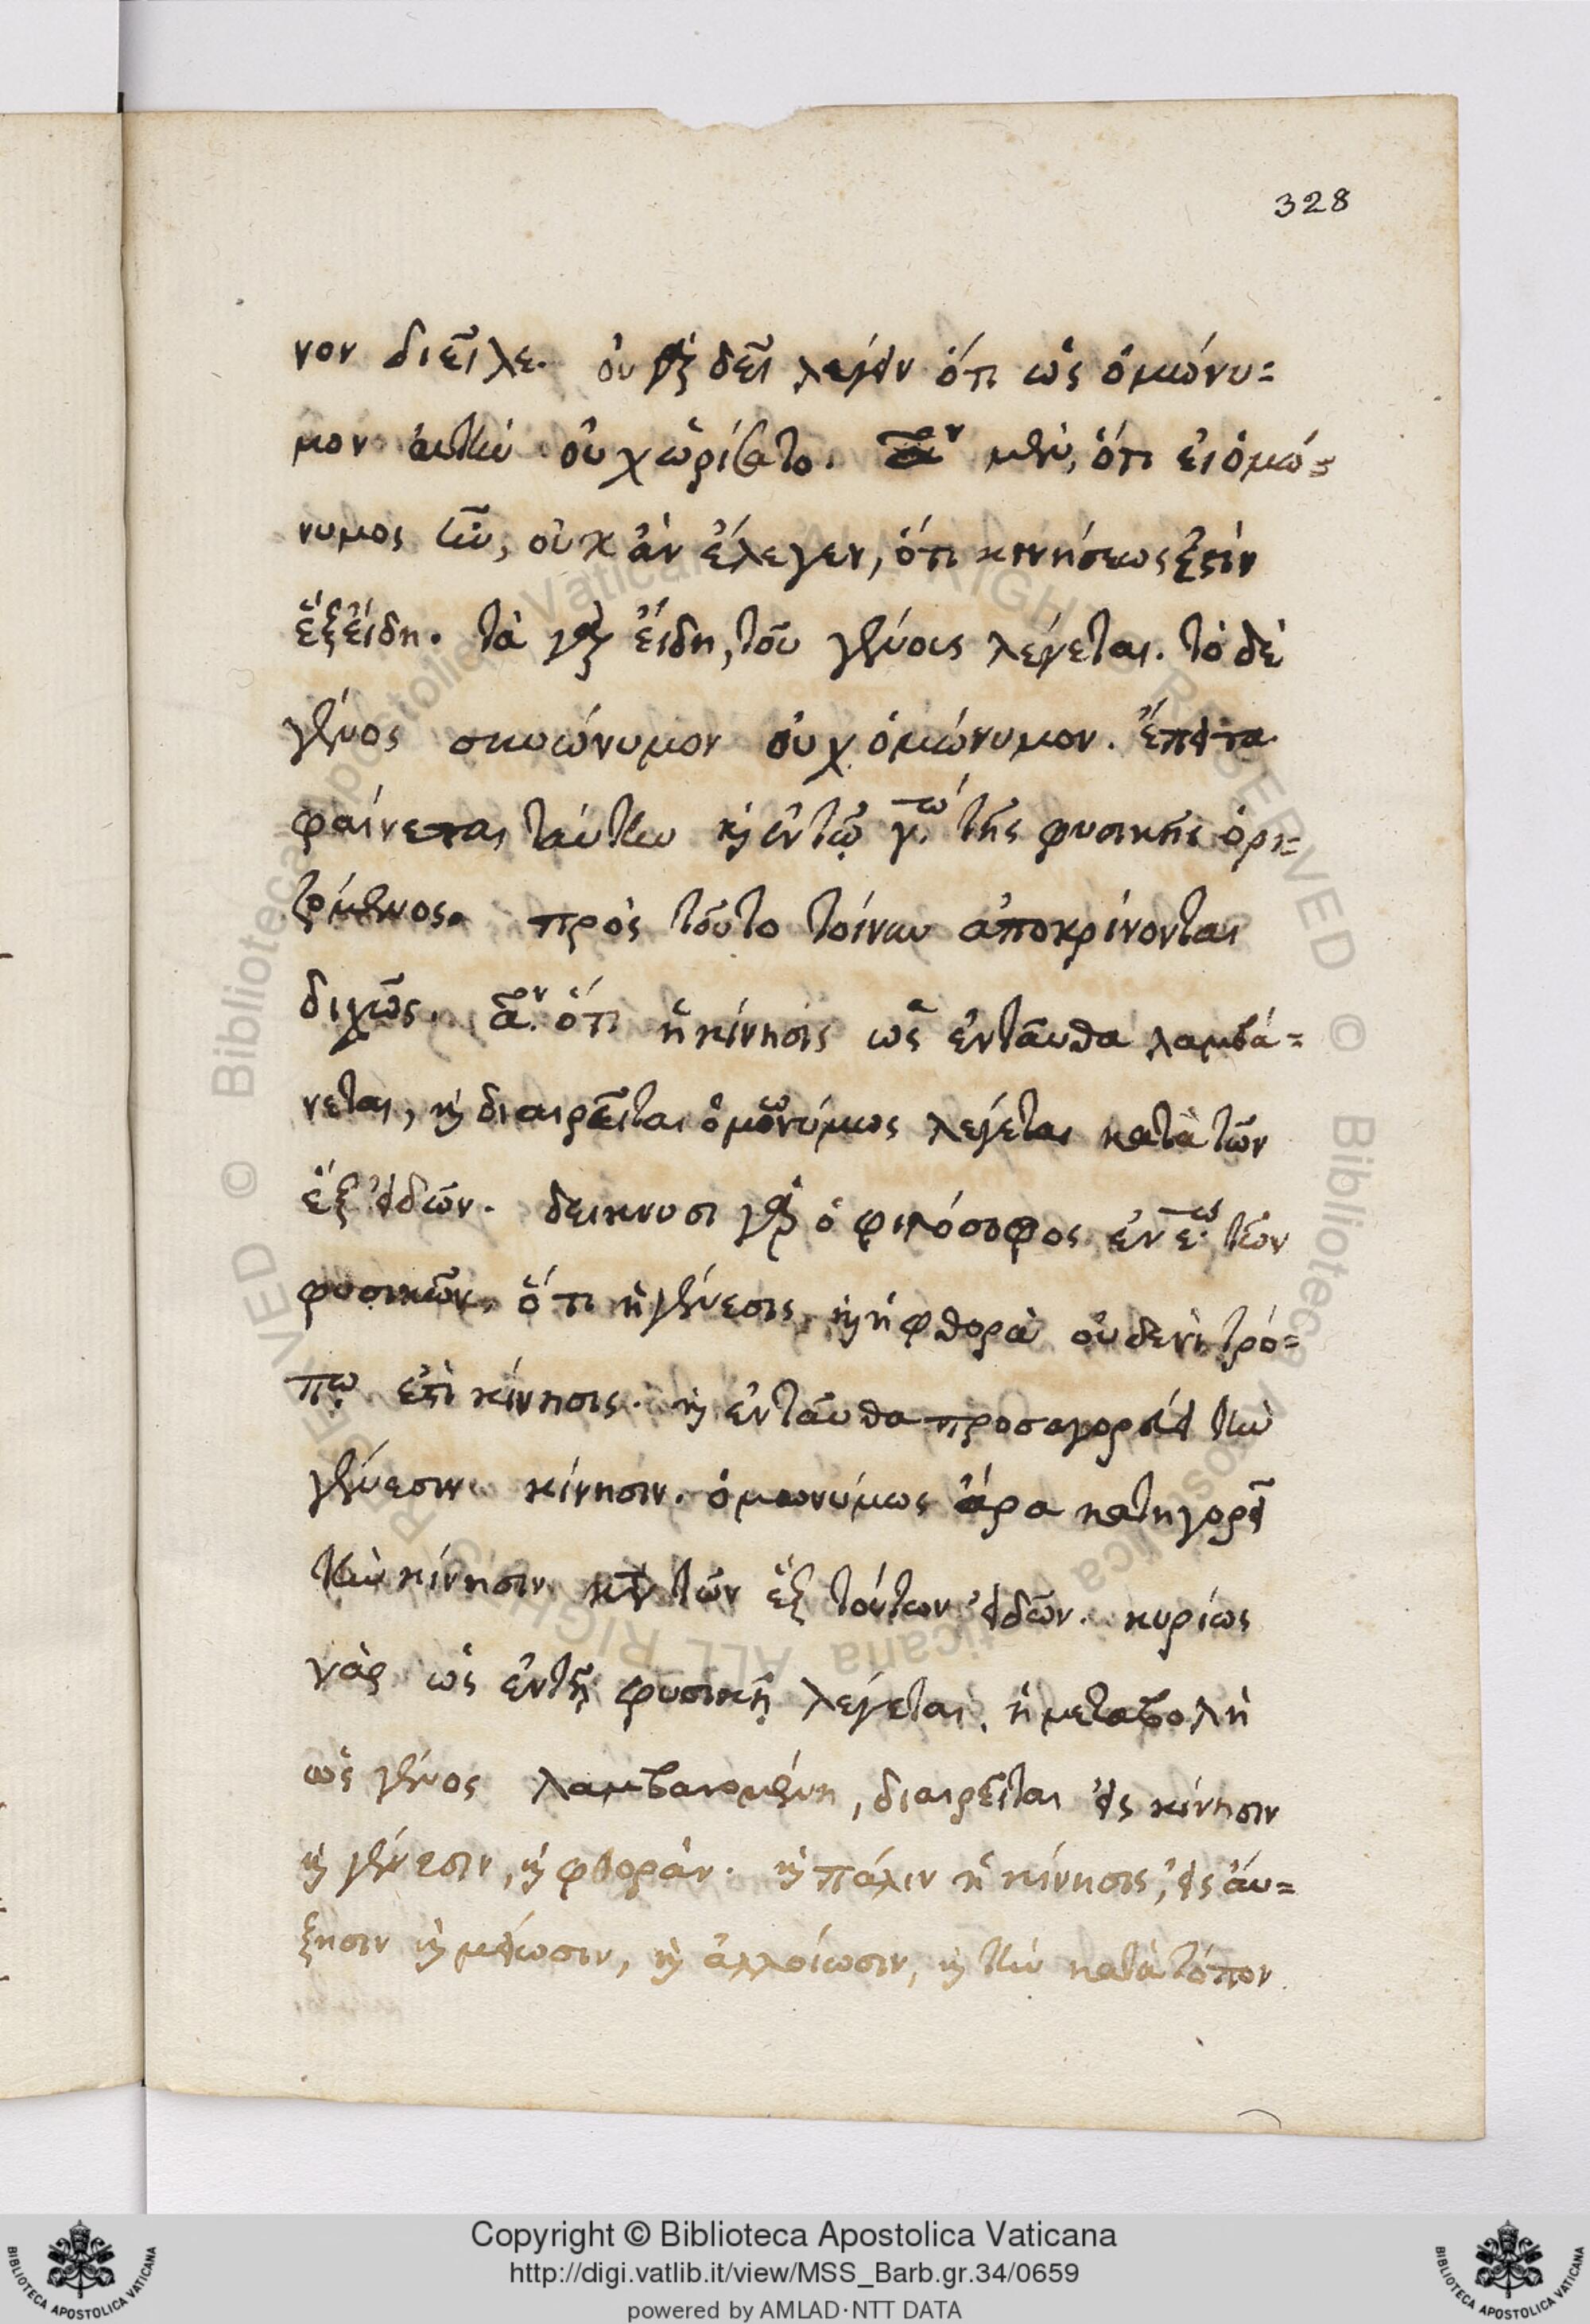 328
νον διεῖλε. οὐ γὰρ δεῖ λέγειν ὅτι ὡς ὁμώνυ=
μον αὐτὴν οὐ χωρίσατο. αον μὲν, ὅτι εἰ ὁμώ=
νυμος ἦν, οὐκ ἂν ἔλεγεν, ὅτι κινήσεως ἐστὶν
ἓξ εἴδη. τὰ γὰρ εἴδη, τοῦ γένους λέγεται. τὸ δὲ
γένος συνώνυμον οὐχ ὁμώνυμον. ἔπειτα
φαίνεται ταύτην καὶ ἐν τῷ γ.ῳ τῆς φυσικῆς ὁρι=
ζόμενος. πρὸς τοῦτο τοίνυν ἀποκρίνονται
διχῶς. αον. ὅτι ἡ κίνησις ὡς ἐνταῦθα λαμβά=
νεται, καὶ διαιρεῖται ὁμωνύμως λέγεται κατὰ τῶν
ἓξ εἰδῶν. δείκνυσι γὰρ ὁ φιλόσοφος ἐν ε.ῳ τῶν
φυσικῶν, ὅτι ἡ γένεσις, καὶ ἡ φθορὰ οὐδενὶ τρό=
πῳ ἐστὶ κίνησις. καὶ ἐνταῦθα προσαγορεύει τὴν
γένεσιν κίνησιν. ὁμωνύμως ἄρα κατηγορεῖ
τὴν κίνησιν κατὰ τῶν ἓξ τούτων εἰδῶν. κυρίως
γὰρ ὡς ἐν τῇ φυσικῇ λέγεται, ἡ μεταβολὴ
ὡς γένος λαμβανομένη, διαιρεῖται εἰς κίνησιν
καὶ γένεσιν, καὶ φθοράν. καὶ πάλιν ἡ κίνησις, εἰς αὔ=
ξησιν καὶ μείωσιν, καὶ ἀλλοίωσιν, καὶ τὴν κατὰ τόπον
Copyright © Biblioteca Apostolica Vaticana
http://digi.vatlib.it/view/MSS_Barb.gr.34/0659
powered by AMLAD·NTT DATA